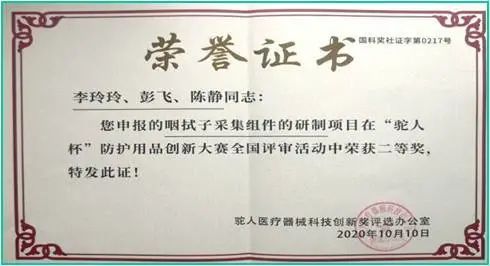 国科奖社证字第0217号
荣誉证书
李玲玲、彭飞、陈静同志：
您申报的咽拭子采集组件的研制项目在“驼人
杯”防护用品创新大赛全国评审活动中荣获二等奖，
特发此证！
驼人医疗器械科技创新奖评选办公室
2020年10月10日